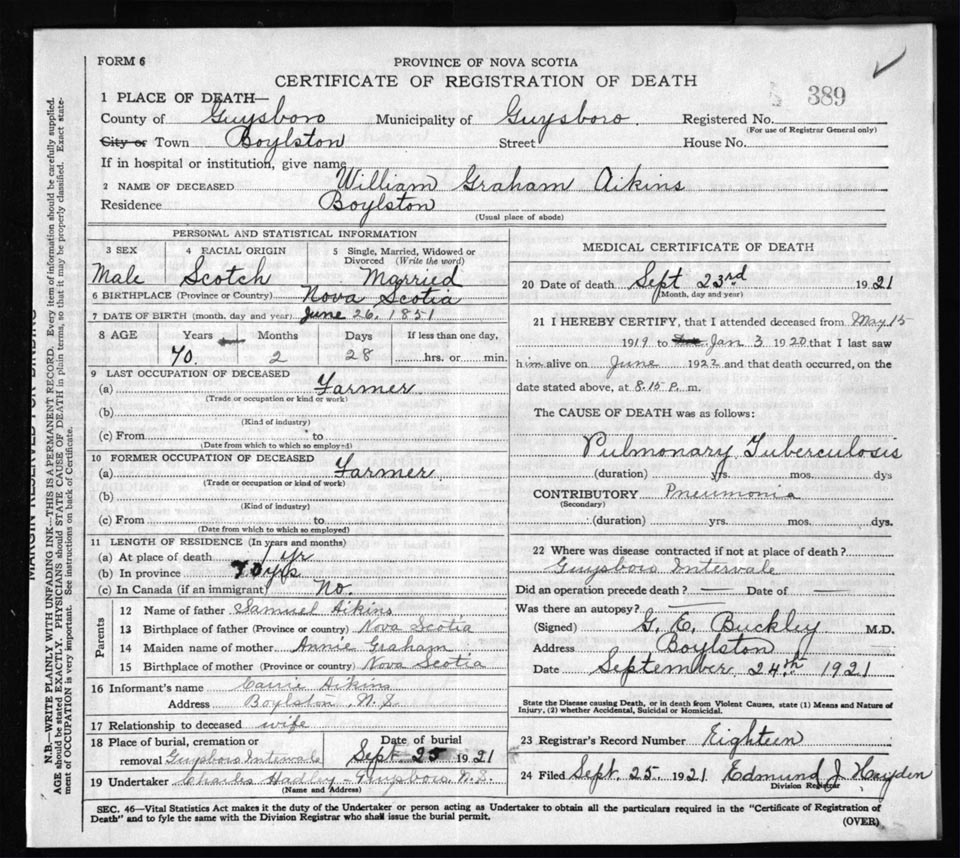 FORM 6
PROVINCE OF NOVA SCOTIA
CERTIFICATE OF REGISTRATION OF DEATH
389
1 PLACE OF DEATH—
County of Guysboro Municipality of Guysboro Registered No.
(For use of Registrar General only)
City or Town Boylston Street House No.
If in hospital or institution, give name
2 NAME OF DECEASED William Graham Aikins
Residence Boylston
(Usual place of abode)
PERSONAL AND STATISTICAL INFORMATION
3 SEX 4 RACIAL ORIGIN 5 Single, Married, Widowed or Divorced (Write the word)
Male Scotch Married
6 BIRTHPLACE (Province or Country) Nova Scotia
7 DATE OF BIRTH (month, day and year) June 26, 1851
8 AGE Years Months Days If less than one day,
70. 2 28 hrs. or min.
9 LAST OCCUPATION OF DECEASED
(a) Farmer
(Trade or occupation or kind of work)
(b)
(Kind of industry)
(c) From to
(Date from which to which so employed)
10 FORMER OCCUPATION OF DECEASED
(a) Farmer
(Trade or occupation or kind of work)
(b)
(Kind of industry)
(c) From to
(Date from which to which so employed)
11 LENGTH OF RESIDENCE (In years and months)
(a) At place of death 1 yr
(b) In province 70 yrs
(c) In Canada (if an immigrant) No.
Parents
12 Name of father Samuel Aikins
13 Birthplace of father (Province or country) Nova Scotia
14 Maiden name of mother Annie Graham
15 Birthplace of mother (Province or country) Nova Scotia
16 Informant's name Carrie Aikins
Address Boylston, N.S.
17 Relationship to deceased wife
18 Place of burial, cremation or Date of burial
removal Guysboro Intervale Sept. 25 1921
19 Undertaker Charles Hadley - Guysboro N.S.
(Name and Address)
MEDICAL CERTIFICATE OF DEATH
20 Date of death Sept 23rd 1921
(Month, day and year)
21 I HEREBY CERTIFY, that I attended deceased from May 15
1919 to Jan 3 1920 that I last saw
him alive on June 1922 and that death occurred, on the
date stated above, at 8.15 P. m.
The CAUSE OF DEATH was as follows:
Pulmonary Tuberculosis
(duration) yrs. mos. dys
CONTRIBUTORY Pneumonia
(Secondary)
(duration) yrs. mos. dys.
22 Where was disease contracted if not at place of death?
Guysboro Intervale
Did an operation precede death? — Date of —
Was there an autopsy? —
(Signed) G. E. Buckley M.D.
Address Boylston
Date September 24th 1921
State the Disease causing Death, or in death from Violent Causes, state (1) Means and Nature of
Injury, (2) whether Accidental, Suicidal or Homicidal.
23 Registrar's Record Number Eighteen
24 Filed Sept. 25 1921 Edmund J. Hayden
Division Registrar
SEC. 46—Vital Statistics Act makes it the duty of the Undertaker or person acting as Undertaker to obtain all the particulars required in the "Certificate of Registration of
Death" and to fyle the same with the Division Registrar who shall issue the burial permit.
(OVER)
MARGIN RESERVED FOR BINDING
N.B.—WRITE PLAINLY WITH UNFADING INK—THIS IS A PERMANENT RECORD. Every item of information should be carefully supplied.
AGE should be stated EXACTLY. PHYSICIANS should STATE CAUSE OF DEATH in plain terms, so that it may be properly classified. Exact state-
ment of OCCUPATION is very important. See instructions on back of Certificate.